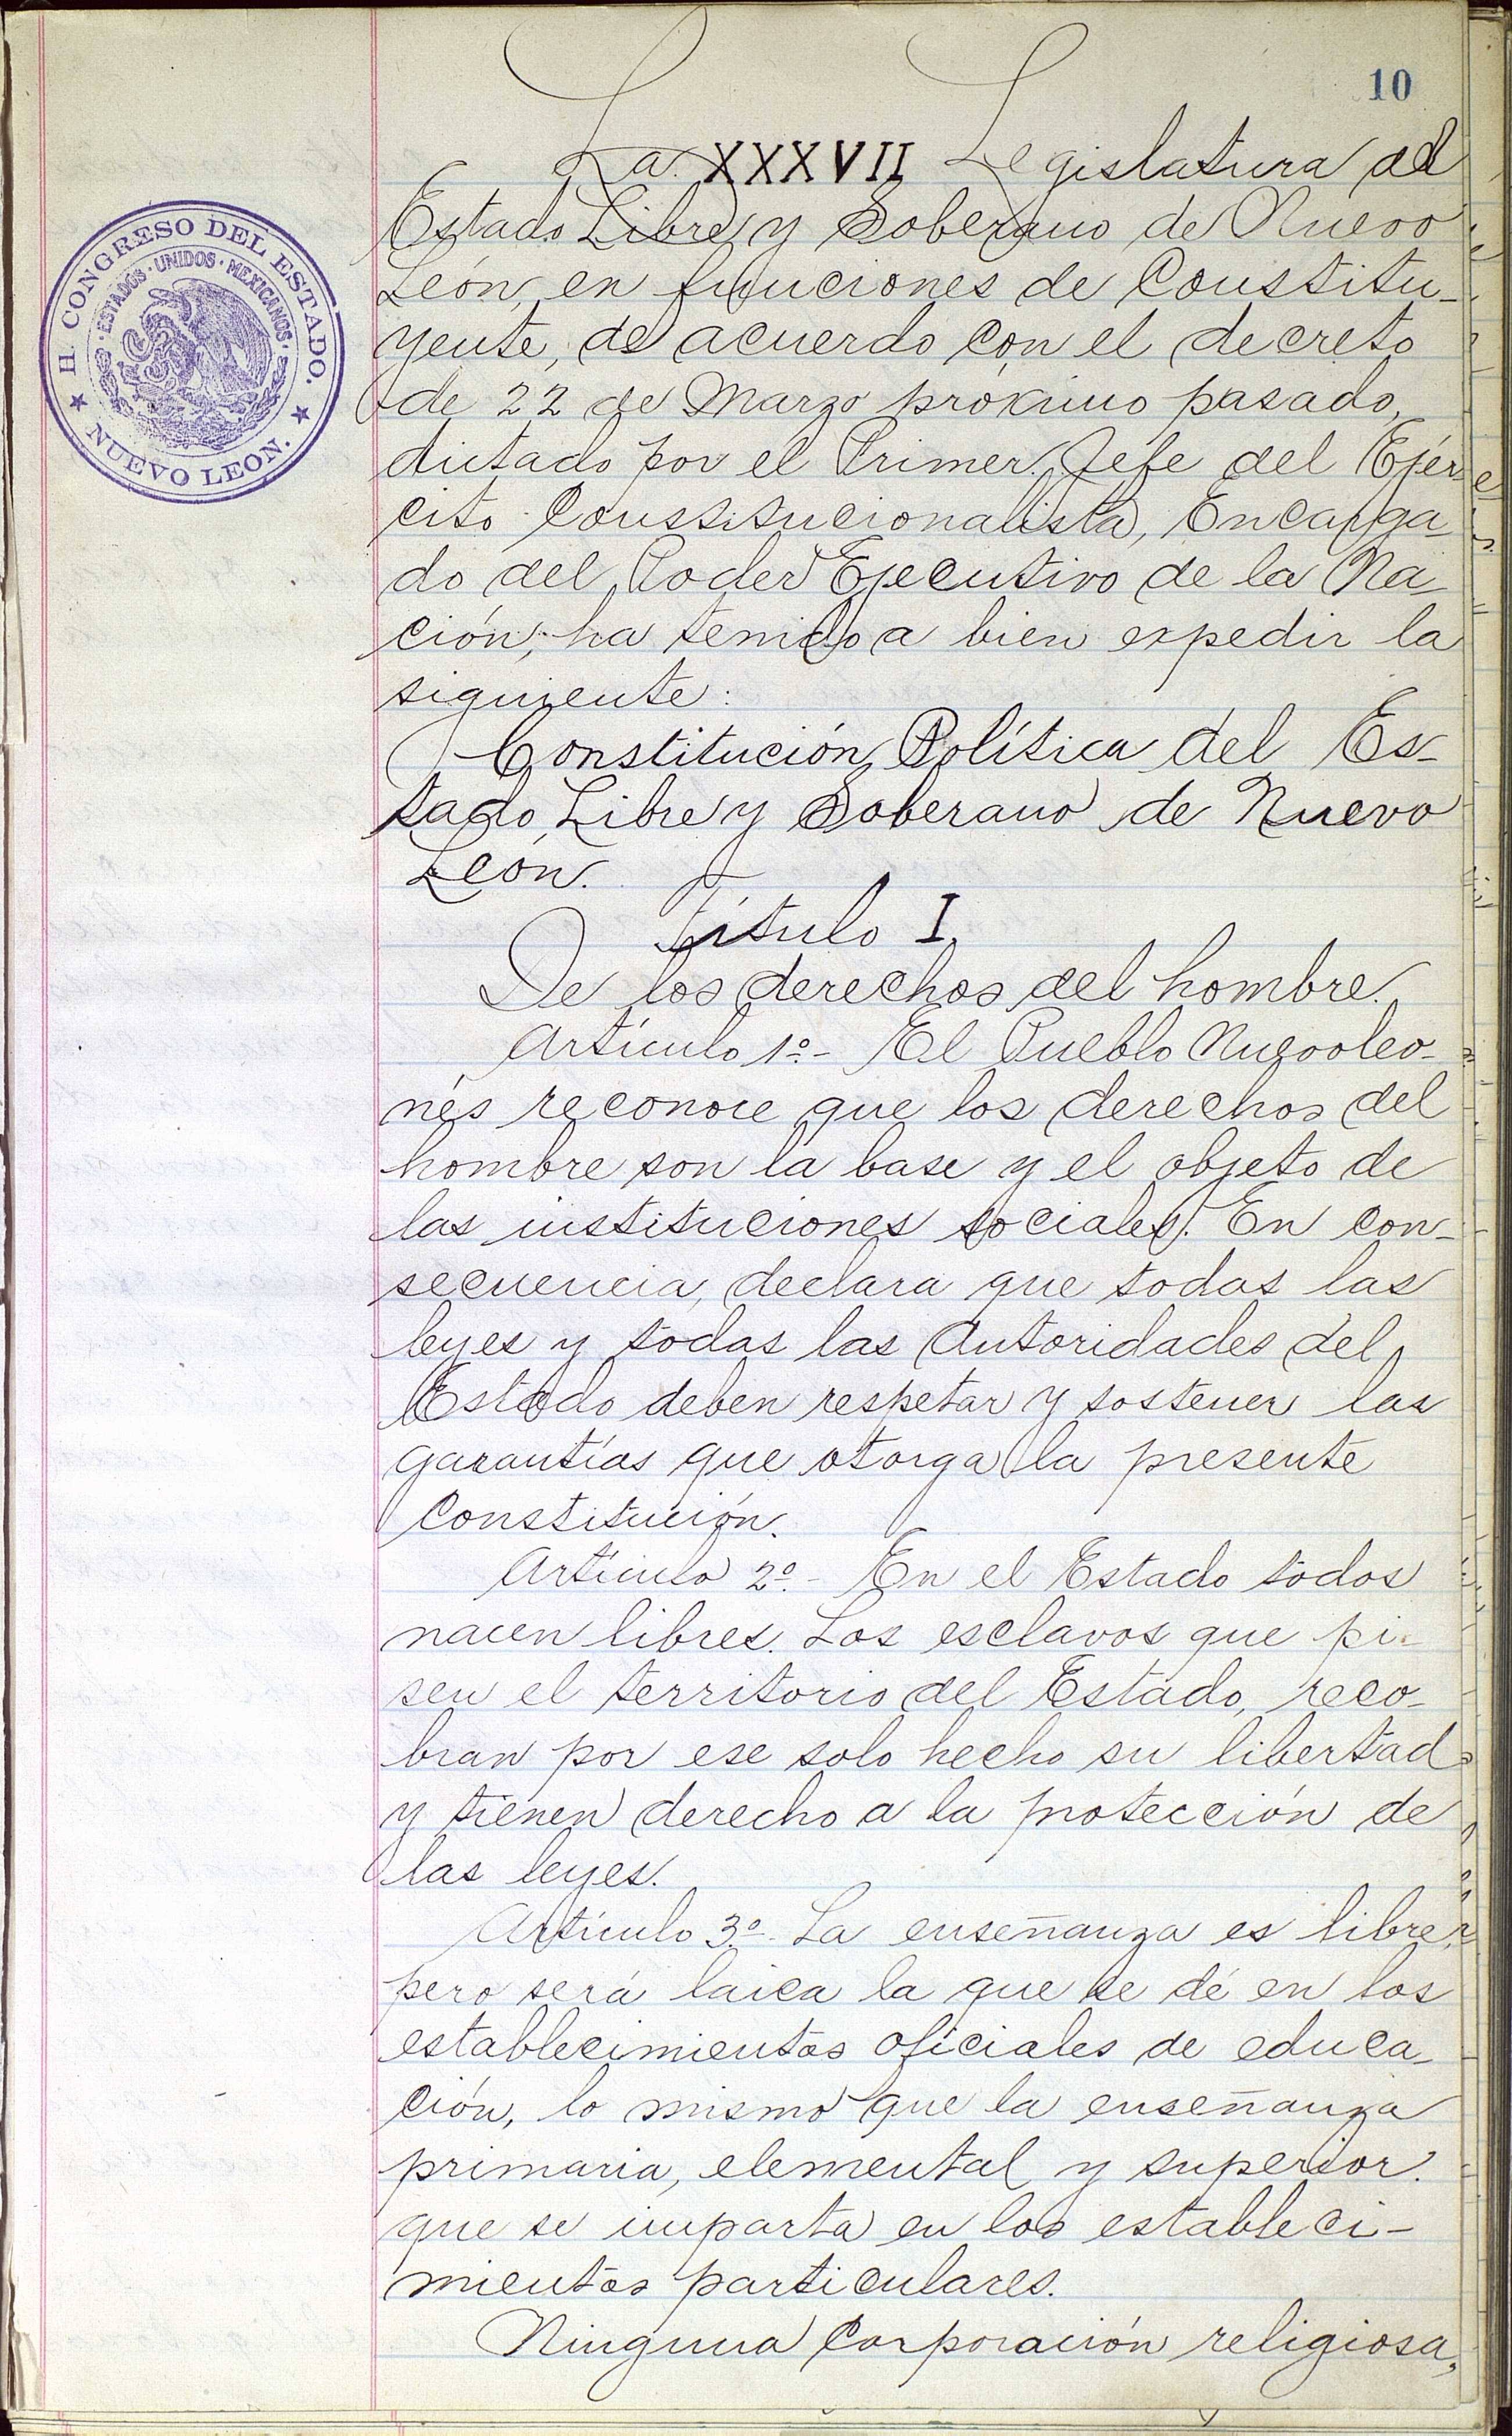 10
La XXXVII Legislatura del
Estado Libre y Soberano de Nuevo
León, en funciones de Constitu-
yente, de acuerdo con el decreto
de 22 de Marzo próximo pasado,
dictado por el Primer Jefe del Ejér-
cito Constitucionalista, Encarga-
do del Poder Ejecutivo de la Na-
ción, ha tenido a bien expedir la
siguiente:
Constitución Política del Es-
tado Libre y Soberano de Nuevo
León.
Título I.
De los derechos del hombre.
Artículo 1º.- El Pueblo Nuevoleo-
nés reconoce que los derechos del
hombre son la base y el objeto de
las instituciones sociales. En con-
secuencia, declara que todas las
leyes y todas las Autoridades del
Estado deben respetar y sostener las
garantías que otorga la presente
Constitución.
Artículo 2º.- En el Estado todos
nacen libres. Los esclavos que pi-
sen el territorio del Estado, reco-
bran por ese solo hecho su libertad
y tienen derecho a la protección de
las leyes.
Artículo 3º.- La enseñanza es libre,
pero será laica la que se dé en los
establecimientos oficiales de educa-
ción, lo mismo que la enseñanza
primaria, elemental y superior
que se imparta en los estableci-
mientos particulares.
Ninguna corporación religiosa,
H. CONGRESO DEL ESTADO.
ESTADOS · UNIDOS · MEXICANOS
NUEVO LEON.